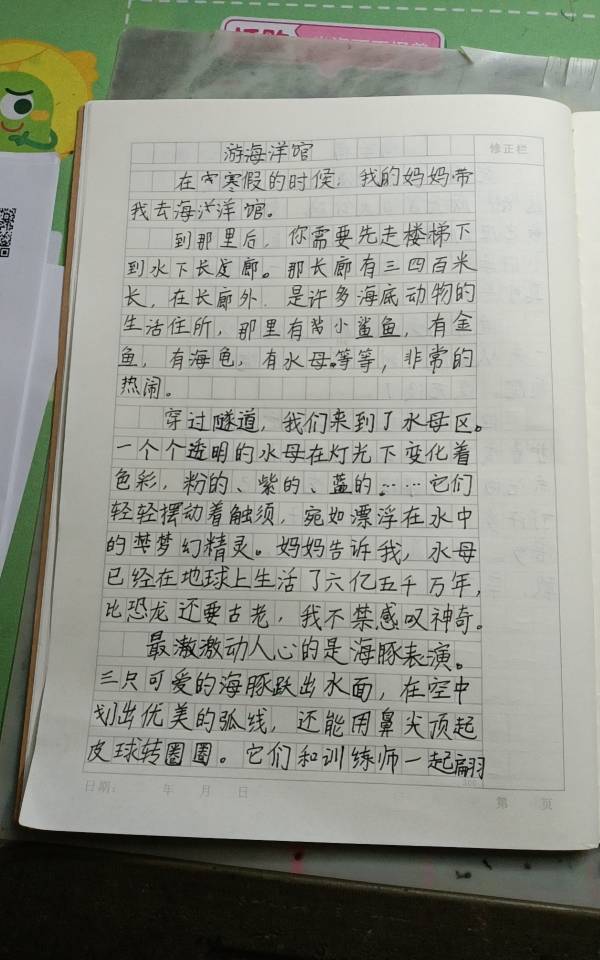 修正栏
游海洋馆
在寒假的时候，我的妈妈带
我去海洋馆。
到那里后，你需要先走楼梯下
到水下长廊。那长廊有三四百米
长，在长廊外，是许多海底动物的
生活住所，那里有小鲨鱼，有金
鱼，有海龟，有水母等等，非常的
热闹。
穿过隧道，我们来到了水母区。
一个个透明的水母在灯光下变化着
色彩，粉的、紫的、蓝的……它们
轻轻摆动着触须，宛如漂浮在水中
的梦幻精灵。妈妈告诉我，水母
已经在地球上生活了六亿五千万年，
比恐龙还要古老，我不禁感叹神奇。
最激动人心的是海豚表演。
三只可爱的海豚跃出水面，在空中
划出优美的弧线，还能用鼻尖顶起
皮球转圈圈。它们和训练师一起翩
日期： 年 月 日
第 页